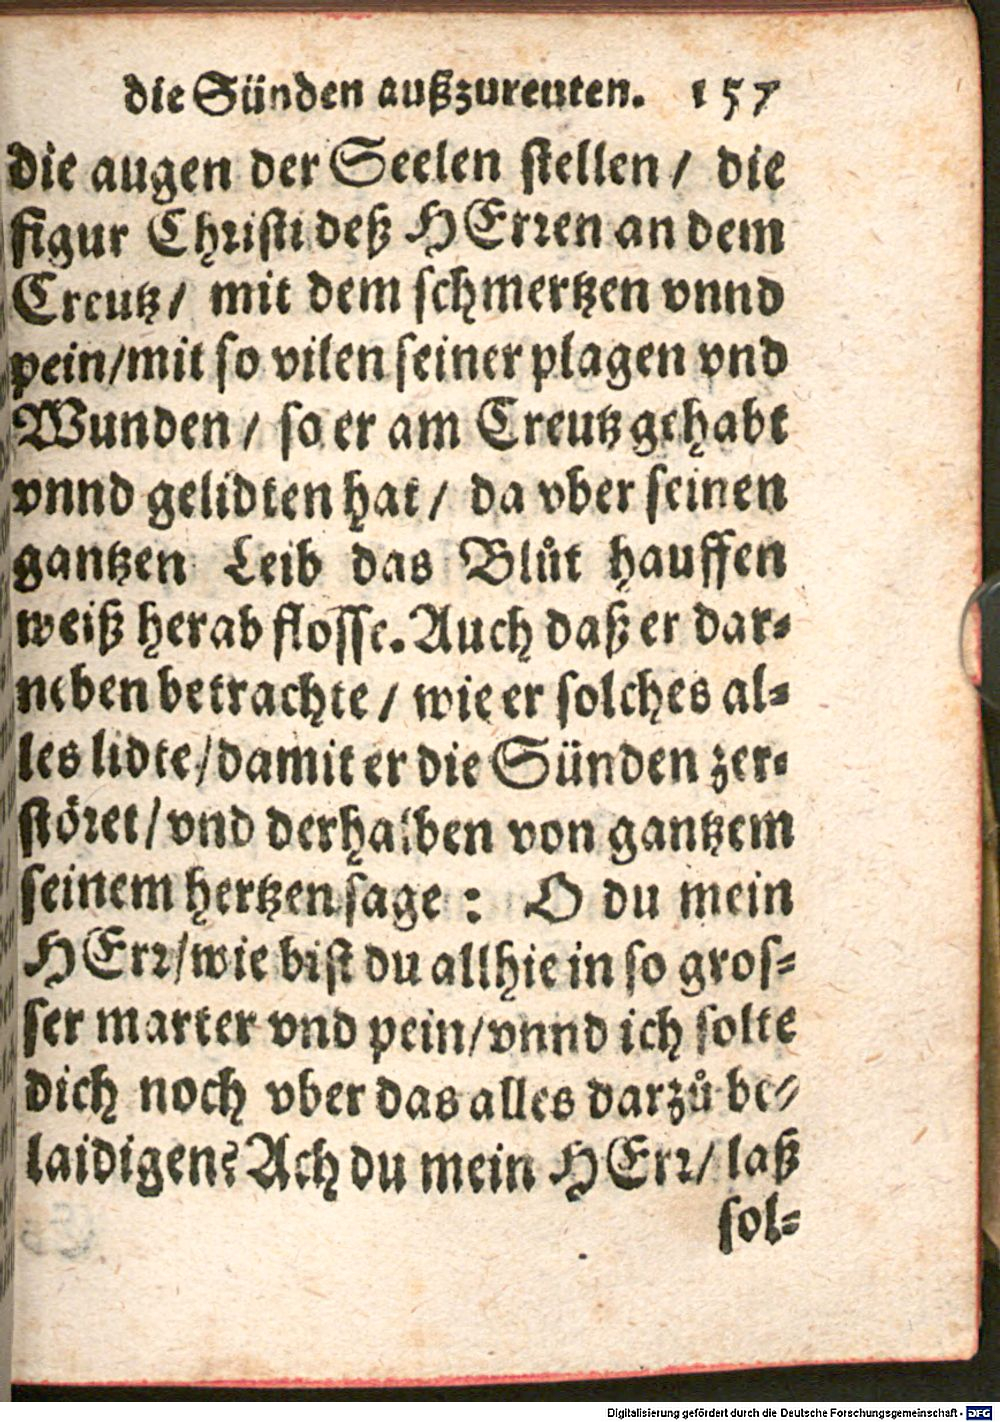 die Sünden außzureuten. 157
die augen der Seelen stellen / die
figur Christi deß HErren an dem
Creutz / mit dem schmertzen vnnd
pein/mit so vilen seiner plagen vnd
Wunden / so er am Creutz gehabt
vnnd gelidten hat / da vber seinen
gantzen Leib das Blůt hauffen
weiß herab flosse. Auch daß er dar-
neben betrachte / wie er solches al-
les lidte/damit er die Sünden zer-
störet/vnd derhalben von gantzem
seinem hertzen sage : O du mein
HErr/wie bist du allhie in so gros-
ser marter vnd pein/vnnd ich solte
dich noch vber das alles darzů be-
laidigen? Ach du mein HErr/ laß
sol-
Digitalisierung gefördert durch die Deutsche Forschungsgemeinschaft - DFG